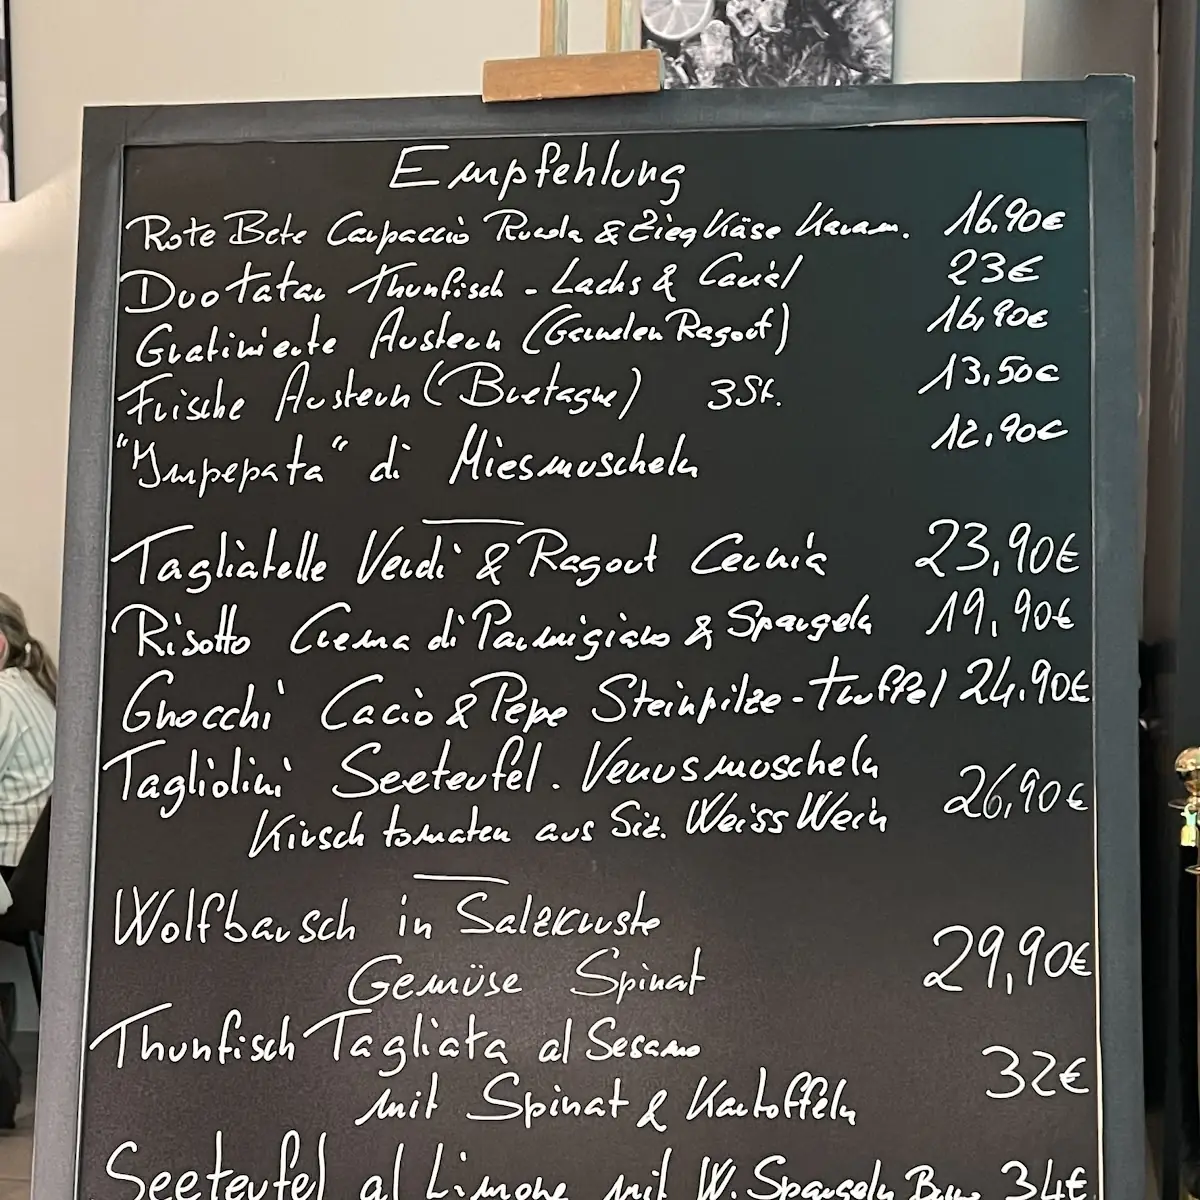 Empfehlung
Rote Bete Carpaccio Rucola & Zieg Käse Karam. 16.90€
Duo Tatar Thunfisch - Lachs & Caviàl 23€
Gratinierte Austern (Garnelen Ragout) 16,90€
Frische Austern (Bretagne) 3St. 13,50€
"Impepata" di Miesmuscheln 12,90€
Tagliatelle Verdi & Ragout Cernia 23,90€
Risotto Crema di Parmigiano & Spargeln 19,90€
Gnocchi Cacio & Pepe Steinpilze-Truffel 24.90€
Tagliolini Seeteufel. Venusmuscheln
Kirsch tomaten aus Siz. Weiss Wein 26,90€
Wolfbarsch in Salzkruste
Gemüse Spinat 29,90€
Thunfisch Tagliata al Sesamo
mit Spinat & Kartoffeln 32€
Seeteufel al Limone mit W. Spargeln 34€